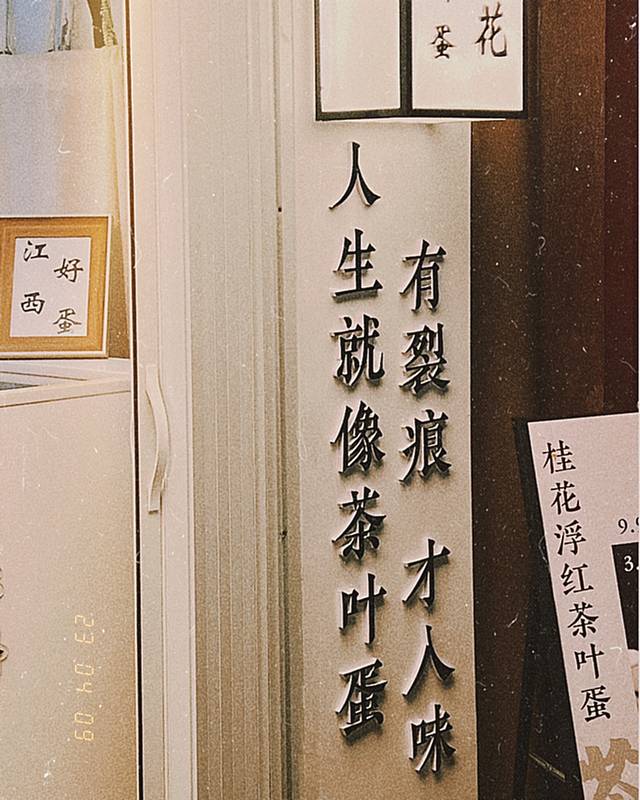 花
蛋
江西
好蛋
人生就像茶叶蛋
有裂痕 才入味
桂花浮红茶叶蛋
9.9
3.
23 04 09